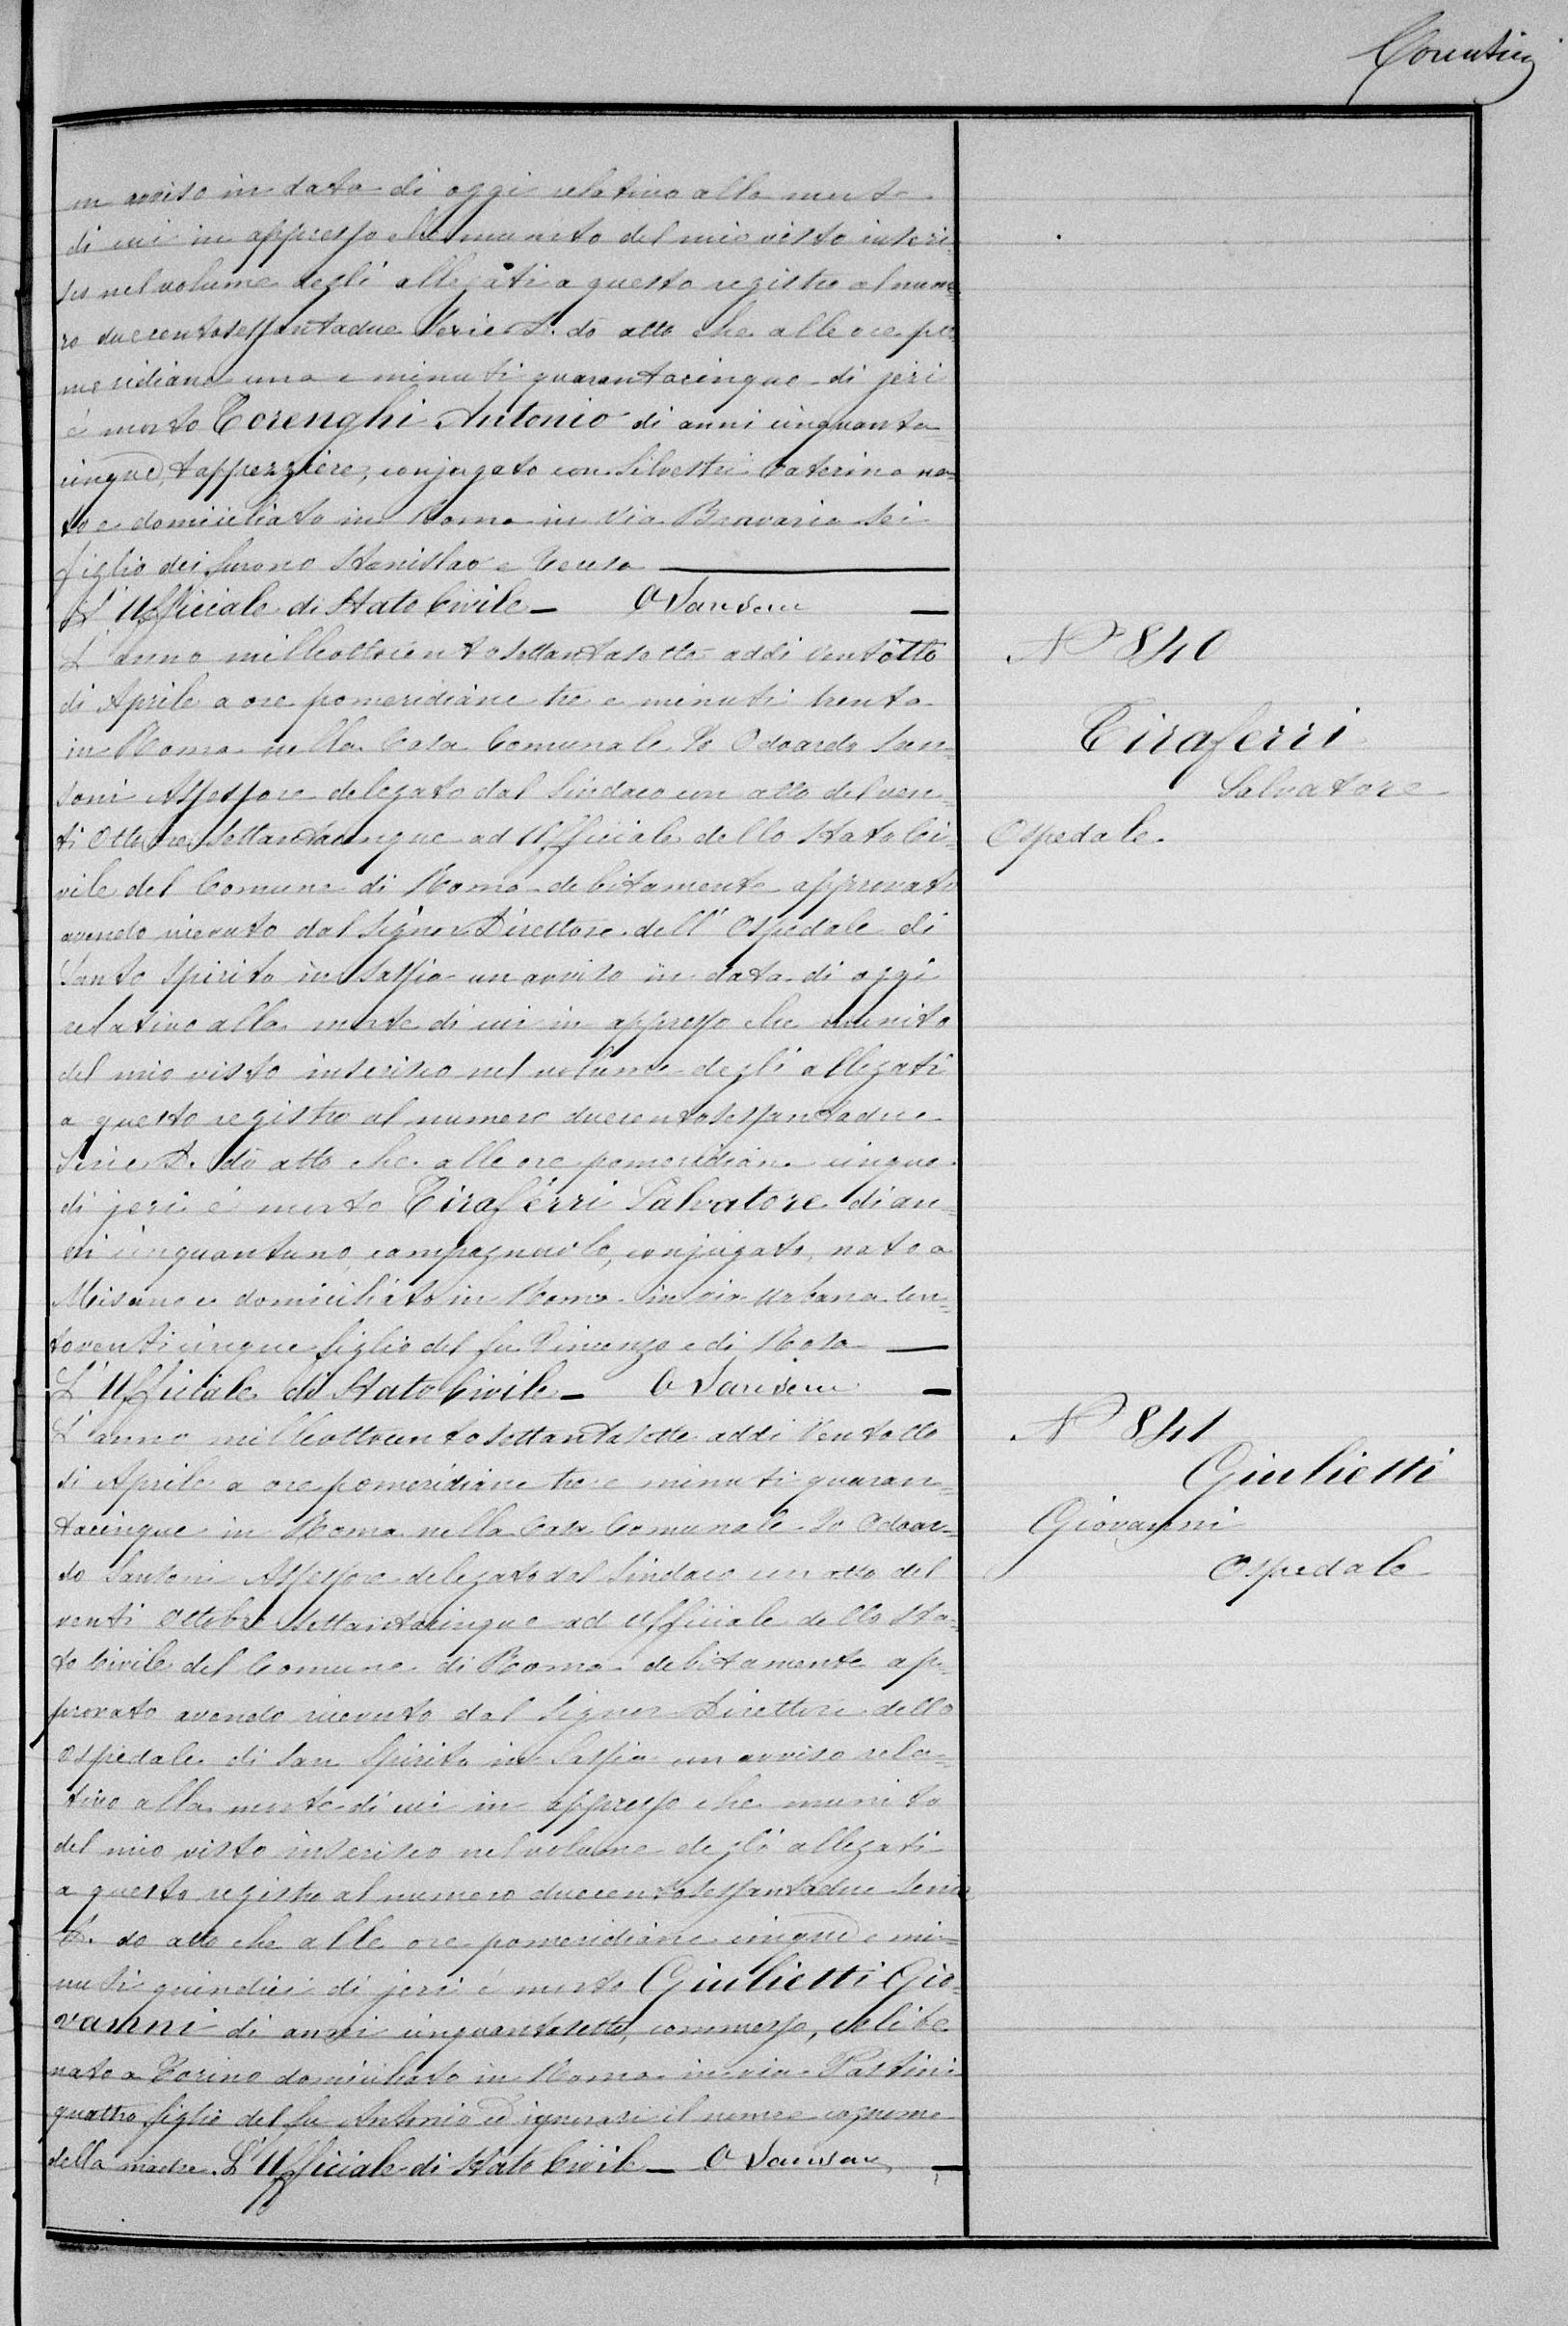 un avviso in data di oggi relativo alla morte
di cui in appresso che munito del mio visto inseri=
sco nel volume degli allegati a questo registro al nume=
ro duecentosessantadue Serie D. do atto che alle ore po=
meridiane una e minuti quarantacinque di jeri
é morto Torenghi Antonio di anni cinquanta=
cinque, tappezziere, conjugato con Silvestri Caterina na=
to e domiciliato in Roma in Via Bravaria sei
figlio dei furono Stanislao e
L'Ufficiale di Stato Civile — O Sansoni —
L'anno milleottocentosettantasette addi Ventotto
di Aprile a ore pomeridiane tre e minuti trenta
in Roma nella Casa Comunale Io Odoardo San=
soni Assessore delegato dal Sindaco con atto del ven=
ti Ottobre settantacinque ad Ufficiale dello Stato Ci=
vile del Comune di Roma debitamente approvato
avendo ricevuto dal Signor Direttore dell' Ospedale di
Santo Spirito in Sassia un avviso in data di oggi
relativo alla morte di cui in appresso che munito
del mio visto inserisco nel volume degli allegati
a questo registro al numero duecentosessantadue
Serie D. do atto che alle ore pomeridiane cinque
di jeri é morto Tiraferri Salvatore di an=
ni cinquantuno, campagnuolo, conjugato, nato a
Misano e domiciliato in Roma in via Urbana cen=
toventicinque figlio del fu Vincenzo e di Rosa —
L'Ufficiale di Stato Civile — O Sansoni —
L'anno milleottocentosettantasette addi Ventotto
di Aprile a ore pomeridiane tre e minuti quaran=
tacinque in Roma nella Casa Comunale Io Odoar=
do Sansoni Assessore delegato dal Sindaco con atto del
venti Ottobre settantacinque ad Ufficiale dello Sta=
to Civile del Comune di Roma debitamente ap=
provato avendo ricevuto dal Signor Direttore dello
Ospedale di San Spirito in Sassia un avviso rela=
tivo alla morte di cui in appresso che munito
del mio visto inserisco nel volume degli allegati
a questo registro al numero duecentosessantadue Serie
D. do atto che alle ore pomeridiane cinque e mi=
nuti quindici di jeri é morto Giulietti Gio=
vanni di anni cinquantasette, commesso, celibe
nato a Torino domiciliato in Roma in via Pastini
quattro figlio del fu Antonio ed ignorasi il nome e cognome
della madre. L'Ufficiale di Stato Civile — O Sansoni —
N° 840
Tiraferri
Salvatore
Ospedale.
N° 841
Giulietti
Giovanni
Ospedale